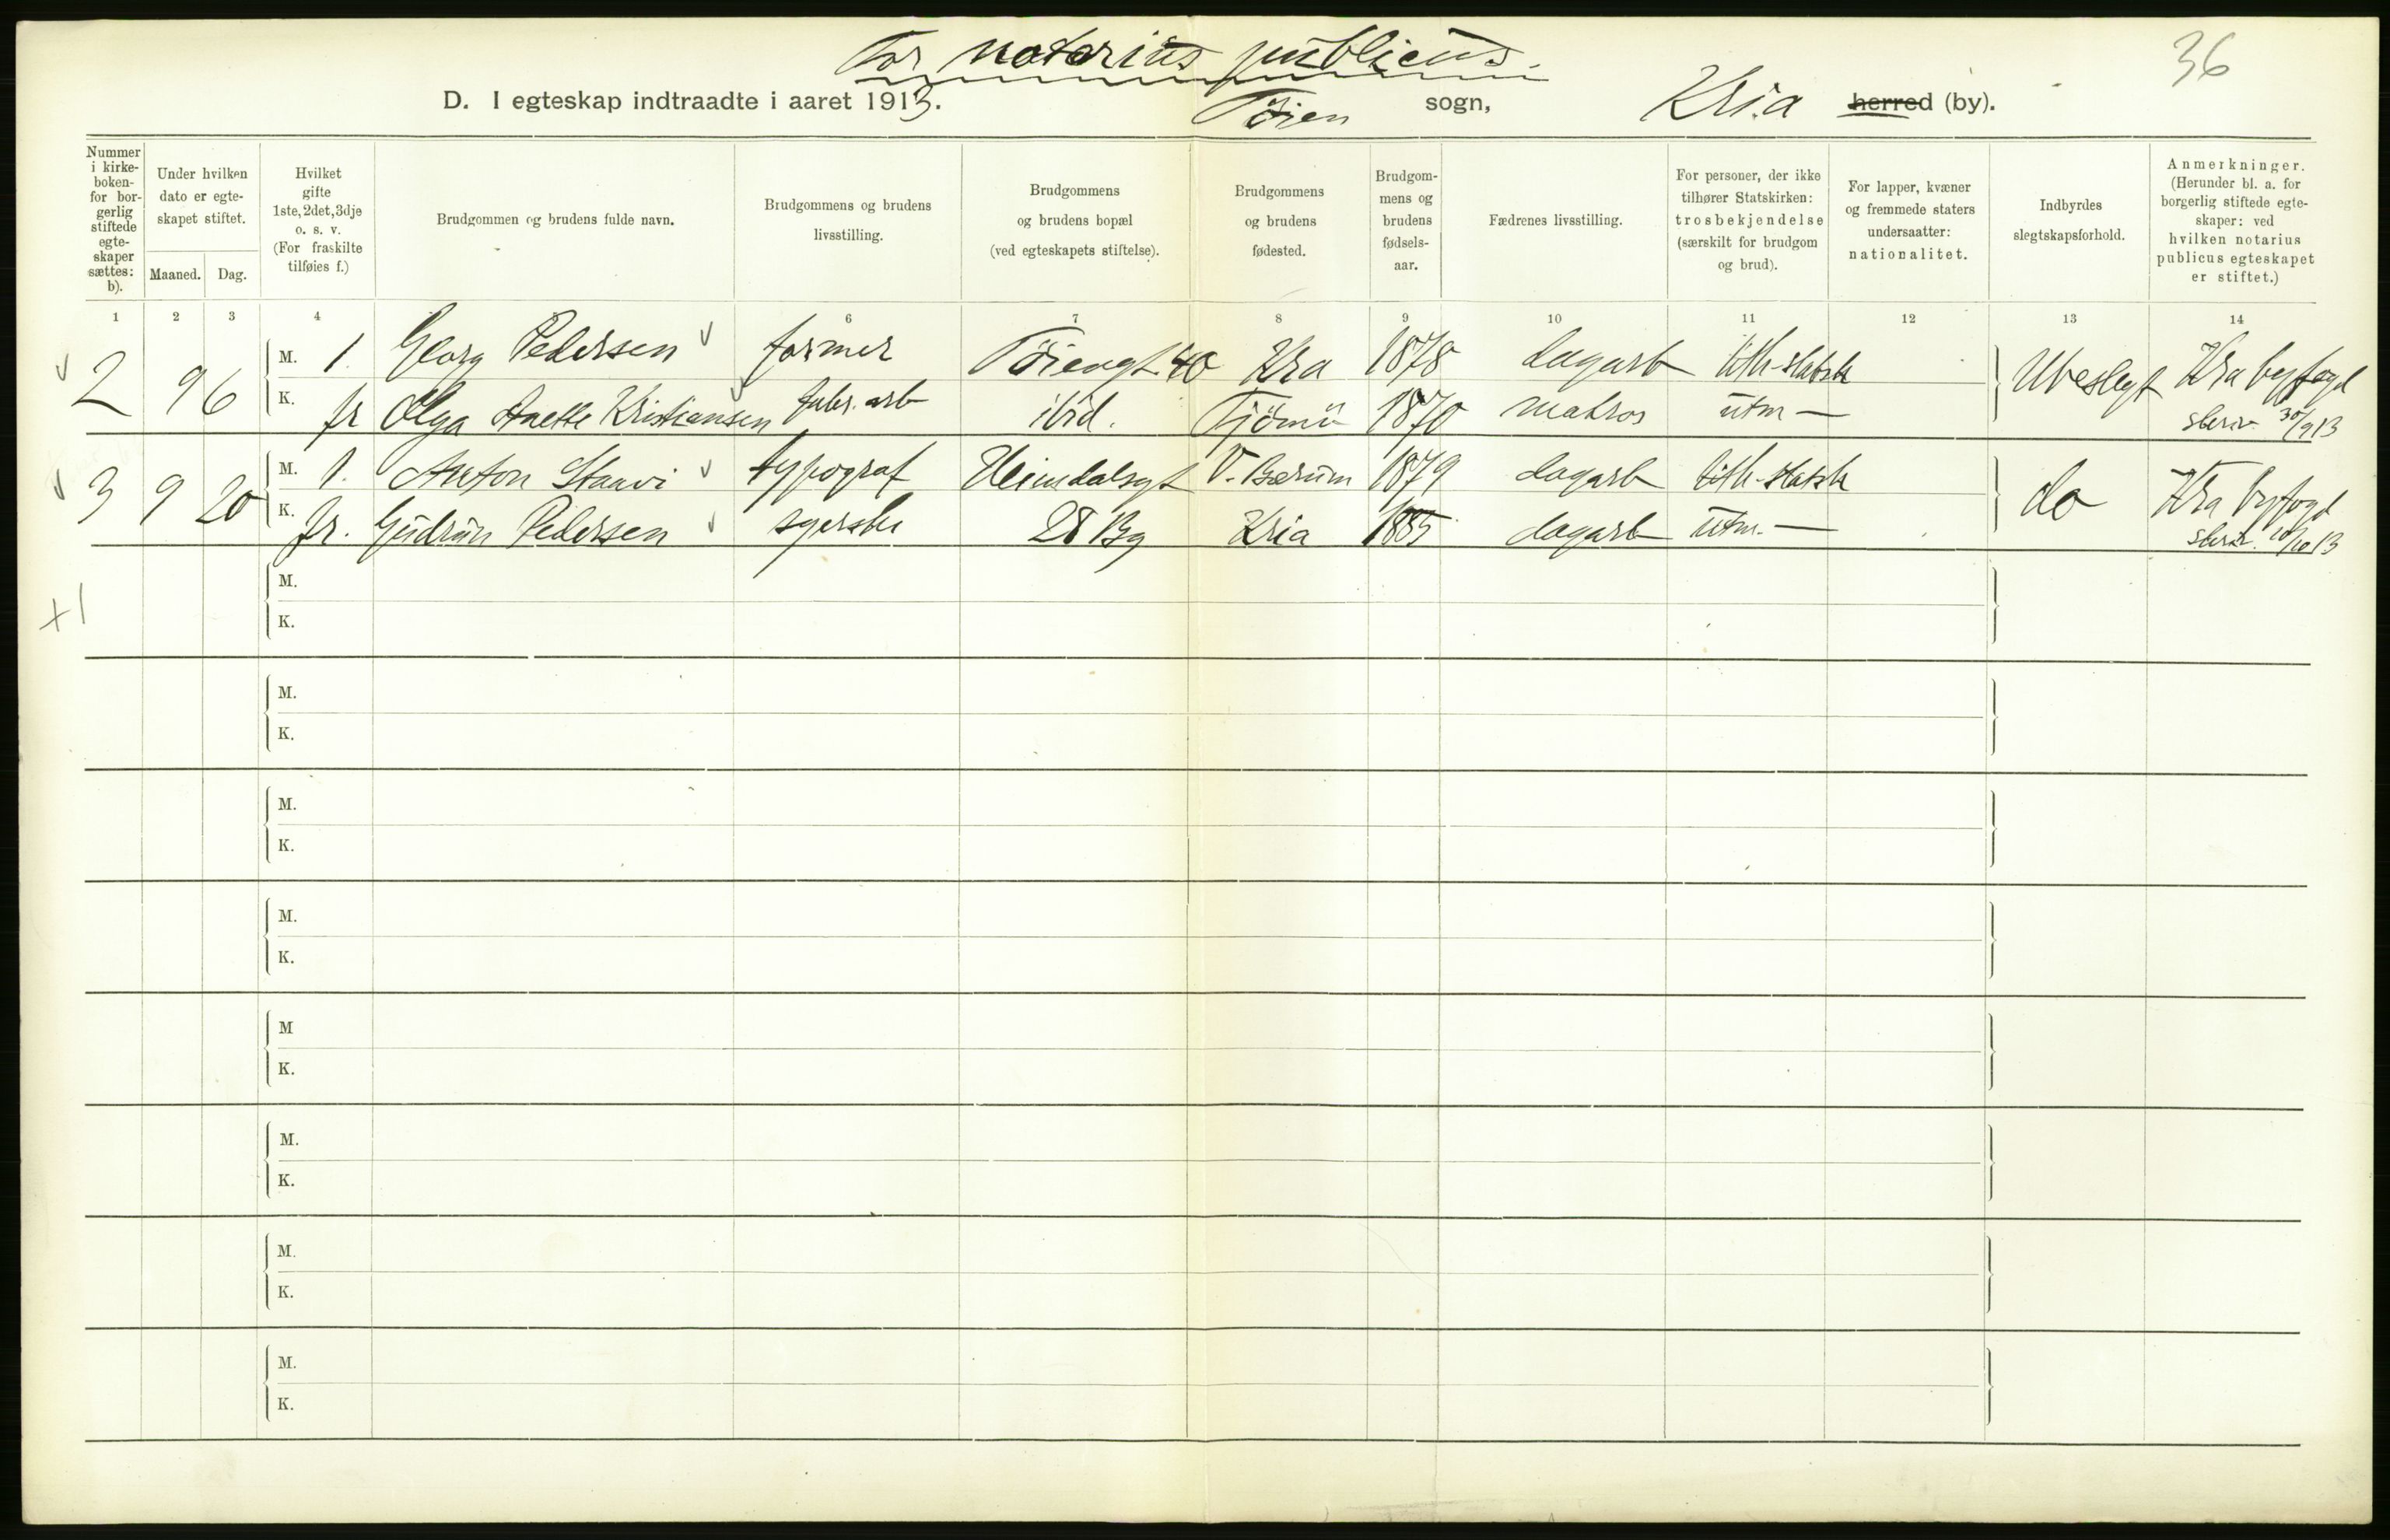 For notarius publicus.
36
D. I egteskap indtraadte i aaret 1913. Tøien sogn, Kria herred (by).
Nummer i kirke-boken- for bor-gerlig stiftede egte-skaper sættes: b).
Under hvilken dato er egte-skapet stiftet.
Maaned. Dag.
Hvilket gifte 1ste, 2det, 3dje o. s. v. (For fraskilte tilføies f.)
Brudgommen og brudens fulde navn.
Brudgommens og brudens livsstilling.
Brudgommens og brudens bopæl (ved egteskapets stiftelse).
Brudgommens og brudens fødested.
Brudgom-mens og brudens fødsels-aar.
Fædrenes livsstilling.
For personer, der ikke tilhører Statskirken: trosbekjendelse (særskilt for brudgom og brud).
For lapper, kvæner og fremmede staters undersaatter: nationalitet.
Indbyrdes slegtskapsforhold.
Anmerkninger. (Herunder bl. a. for borgerlig stiftede egte-skaper: ved hvilken notarius publicus egteskapet er stiftet.)
1 2 3 4 5 6 7 8 9 10 11 12 13 14
2 9 6 M. 1. Georg Pedersen former Tøiengt 40 Kra 1878 dagarb Uth. statsk Ubeslegt Kra byfogd
K. fr Olga Anette Kristiansen fabr. arb ibid. Tjømø 1870 matros utm — skriv. 30/9 13
3 9 20 M. 1. Anton Staavi typograf Heimdalsgt V. Bærum 1879 dagarb Uth. statsk do Kra byfogd
K. fr. Gudrun Pedersen syerske 28 Bg Kria 1885 dagarb utm. — skriv. 10/10 13
+1
M.
K.
M.
K.
M.
K.
M.
K.
M
K.
M.
K.
M.
K.
M.
K.